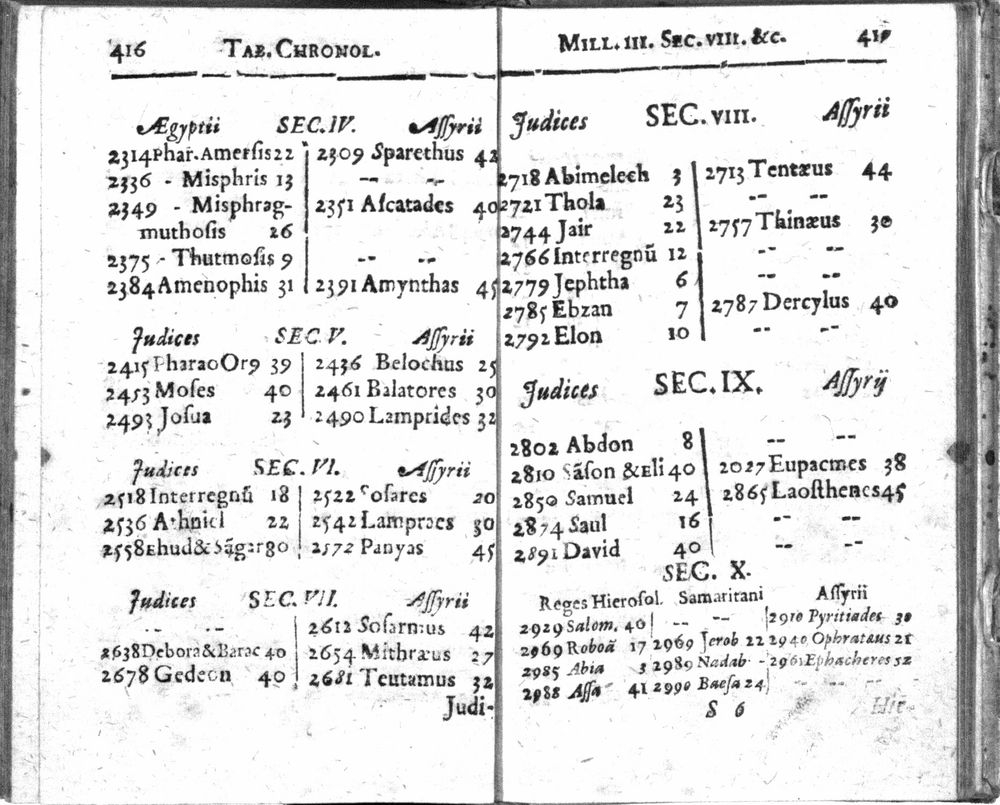 416 TAB. CHRONOL.
Ægyptii SEC. IV. Aſſyrii
2314 Phar. Amerſis 22 2309 Sparethus 42
2336 - Misphris 13 -- --
2349 - Misphrag- 2351 Aſcatades 40
muthoſis 26
2375 - Thutmoſis 9 -- --
2384 Amenophis 31 2391 Amynthas 45
Judices SEC. V. Aſſyrii
2415 Pharao Or9 39 2436 Belochus 25
2453 Moſes 40 2461 Balatores 30
2493 Joſua 23 2490 Lamprides 32
Judices SEC. VI. Aſſyrii
2518 Interregnũ 18 2522 Soſares 20
2536 Athniel 22 2542 Lampraes 30
2558 Ehud & Sãgar 80 2572 Panyas 45
Judices SEC. VII. Aſſyrii
-- -- 2612 Soſarmus 42
2638 Debora & Barac 40 2654 Mithræus 27
2678 Gedeon 40 2681 Teutamus 32
Judi-
MILL. III. SEC. VIII. &c. 417
Judices SEC. VIII. Aſſyrii
2718 Abimelech 3 2713 Tentæus 44
2721 Thola 23 -- --
2744 Jair 22 2757 Thinæus 30
2766 Interregnũ 12 -- --
2779 Jephtha 6 -- --
2785 Ebzan 7 2787 Dercylus 40
2792 Elon 10 -- --
Judices SEC. IX. Aſſyrij
2802 Abdon 8 -- --
2810 Sãſon & Eli 40 2027 Eupacmes 38
2850 Samuel 24 2865 Laoſthenes 45
2874 Saul 16 -- --
2891 David 40 -- --
SEC. X.
Reges Hieroſol. Samaritani Aſſyrii
2929 Salom. 40 -- -- 2910 Pyritiades 30
2969 Roboã 17 2969 Jerob 22 2940 Ophratæus 21
2985 Abia 3 2989 Nadab - 2961 Ephacheres 52
2988 Aſſa 41 2990 Baeſa 24 -- -- --
S 6